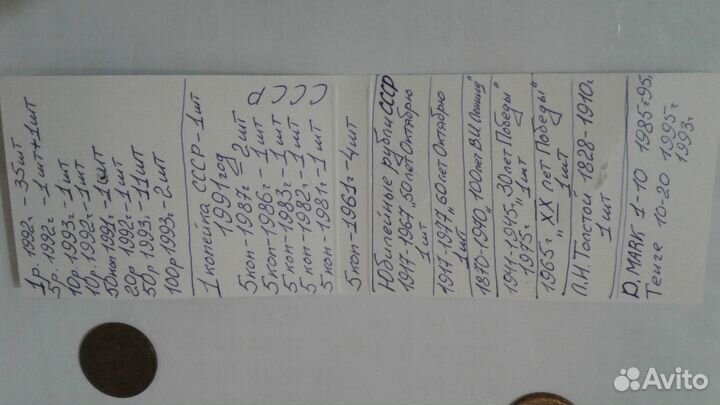 1р. 1992г. - 35шт
5р. 1992г. - 1шт+1шт
10р. 1993г - 1шт
10р. 1992г - 1шт
50коп 1991г. - 1шт
20р 1992г - 1шт
50р 1993г. - 11шт
100р 1993г - 2шт
1 копейка СССР - 1шт
1991год
5коп - 1987г - 2шт
5коп - 1986г - 1шт
5коп - 1983г - 1шт
5коп - 1982г. - 1шт
5коп - 1981г - 1шт
СССР
5коп - 1961г - 4шт
Юбилейные рубли СССР
1917-1967 „50 лет Октябрю
1шт
1917-1977 „60 лет Октябрю
1шт
1870-1970 „100 лет В.И. Ленину"
1941-1945 „30 лет Победы"
1975г 1шт
1965г „XX лет Победы"
1шт
Л.Н. Толстой 1828-1910г
1шт
D. MARK 1-10 1985г-95г.
Тенге 10-20 1995г
1993г
Avito